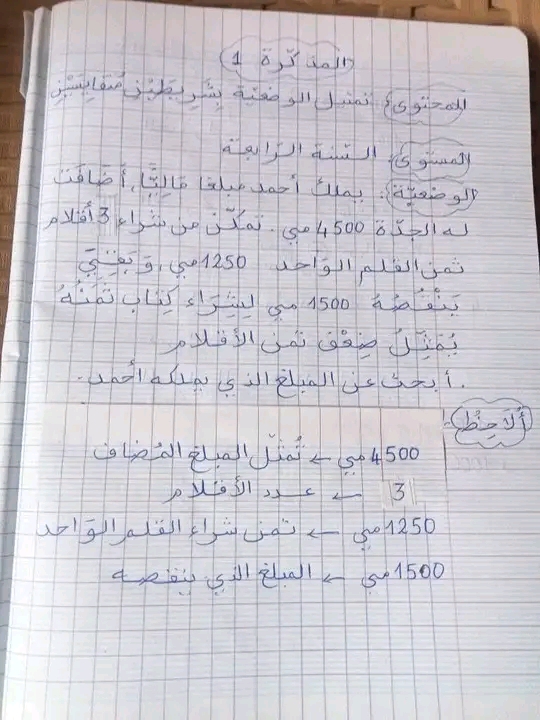 المذكرة 1
المحتوى: تمثيل الوضعيّة بِشَرِيطَيْنِ مُتَقايِسَيْنِ
المستوى: السّنة الرّابعة
الوضعيّة: يملك أحمد مبلغا مَالِيًّا، أَضَافَت
له الجدّة 4500 مي. تمكّن من شراء 3 أقلام
ثمن القلم الوَاحد 1250 مي، وَبَقِيَ
يَنْقُصُهُ 1500 مي لِشِرَاءِ كِتَاب ثَمَنُهُ
يُمَثِّلُ ضِعْفَ ثمن الأقلام
. أبحث عن المبلغ الذي يملكه أحمد.
أُلَاحِظُ:
4500 مي ← تُمثّل المبلغ المُضاف
3 ← عدد الأقلام
1250 مي ← ثمن شراء القلم الوَاحد
1500 مي ← المبلغ الذي ينقصه